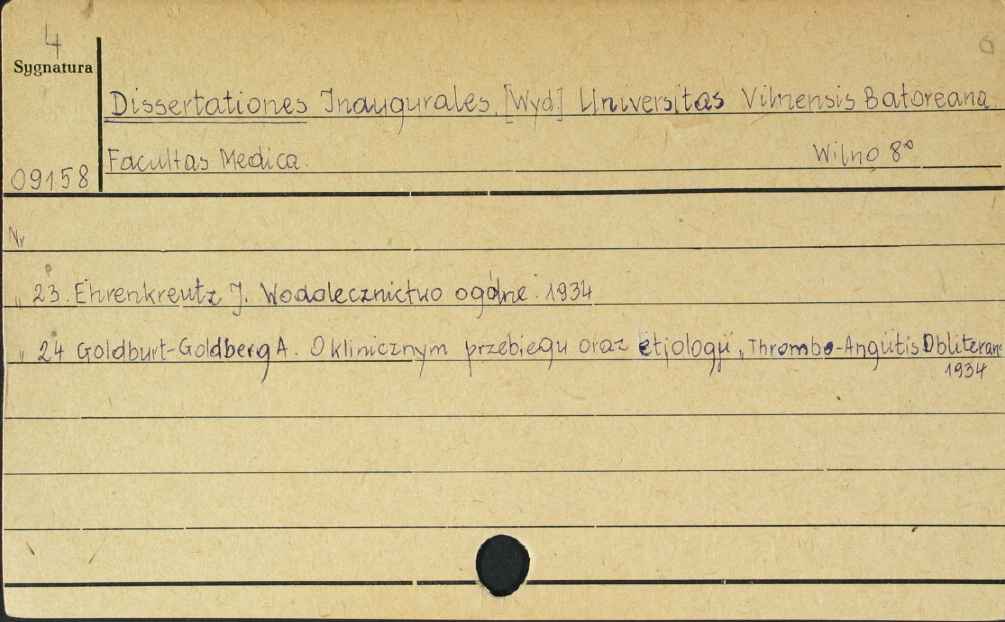 4
Sygnatura
Dissertationes Inaugurales. [Wyd.] Universitas Vilnensis Batoreana.
Facultas Medica. Wilno 8°
09158
Nr
" 23. Ehrenkreutz J. Wodolecznictwo ogólne. 1934
" 24 Goldburt-Goldberg A. O klinicznym przebiegu oraz etjologji „Thrombo-Angiitis Obliterans
1934